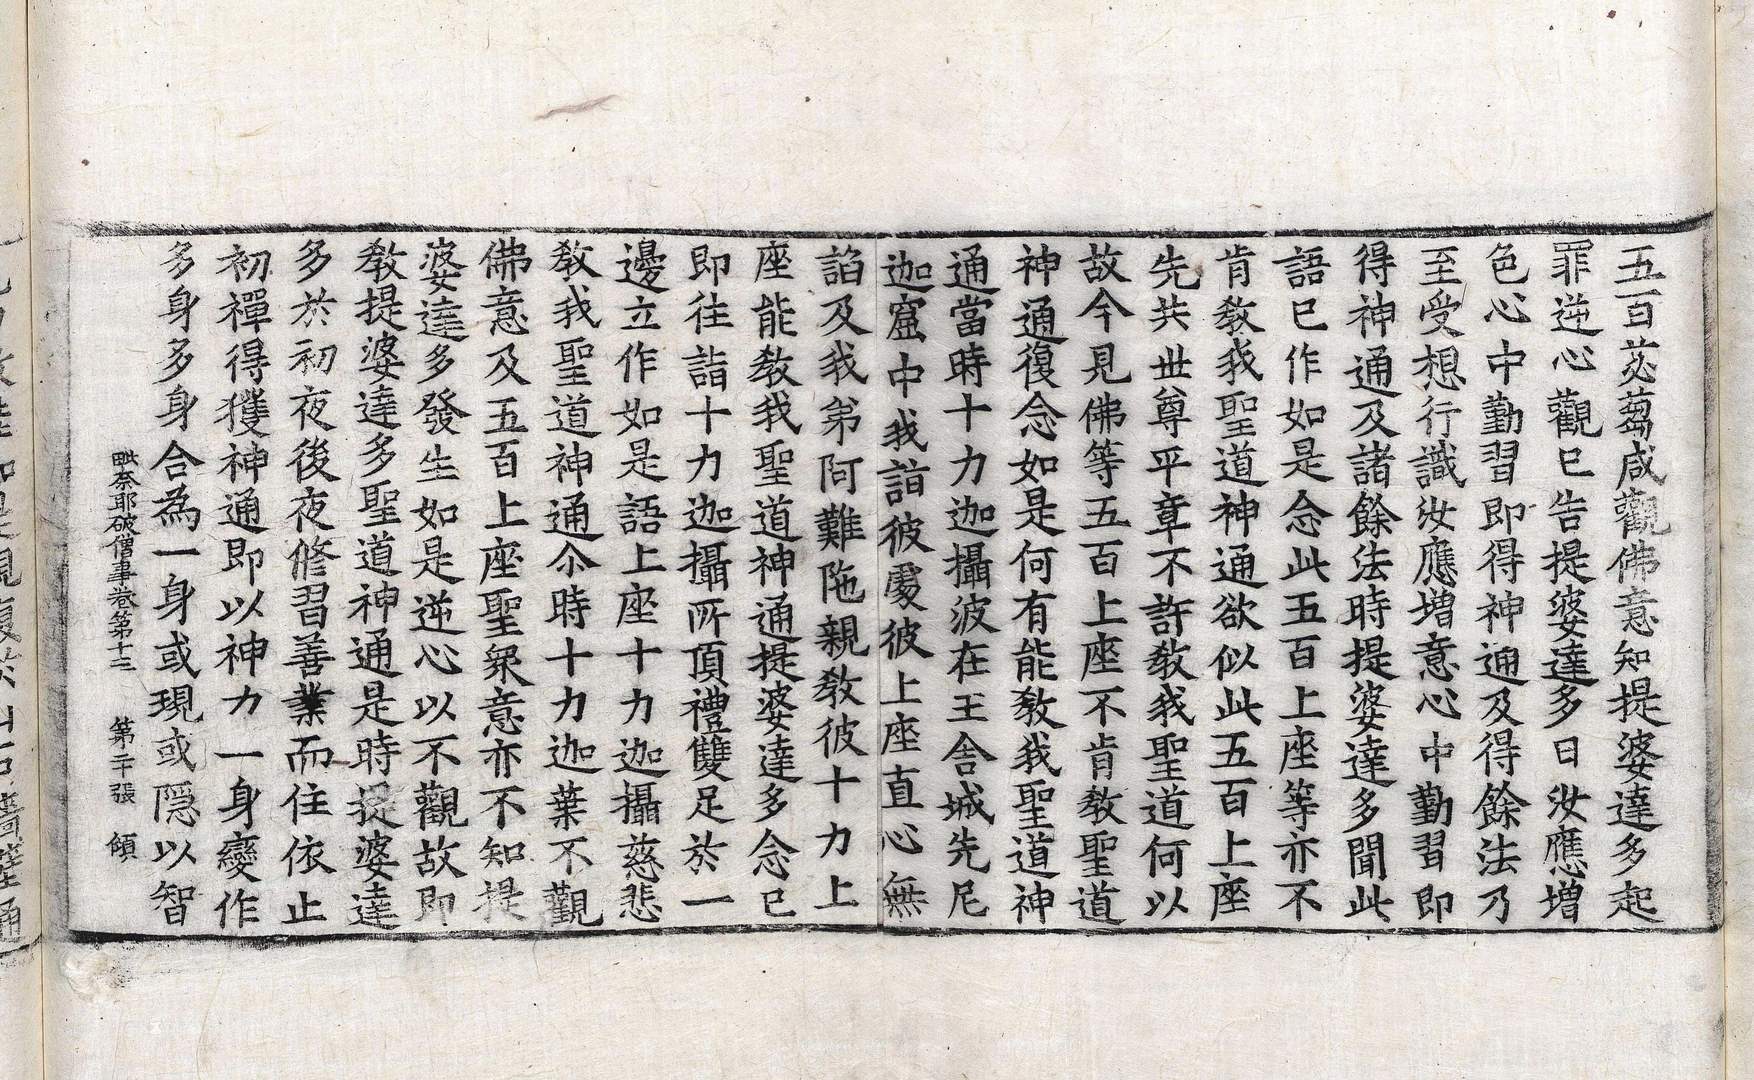 五百苾蒭咸觀佛意知提婆達多起
罪逆心觀已告提婆達多曰汝應增
色心中勤習即得神通及得餘法乃
至受想行識汝應增意心中勤習即
得神通及諸餘法時提婆達多聞此
語已作如是念此五百上座等亦不
肯教我聖道神通欲似此五百上座
先共世尊平章不許教我聖道何以
故今見佛等五百上座不肯教聖道
神通復念如是何有能教我聖道神
通當時十力迦攝波在王舍城先尼
迦窟中我詣彼處彼上座直心無
諂及我弟阿難陁親教彼十力上
座能教我聖道神通提婆達多念已
即往詣十力迦攝所頂禮雙足於一
邊立作如是語上座十力迦攝慈悲
教我聖道神通尒時十力迦葉不觀
佛意及五百上座聖衆意亦不知提
婆達多發生如是逆心以不觀故即
教提婆達多聖道神通是時提婆達
多於初夜後夜修習善業而住依止
初禪得獲神通即以神力一身變作
多身多身合為一身或現或隱以智
毗奈耶破僧事卷第十三 第二十張